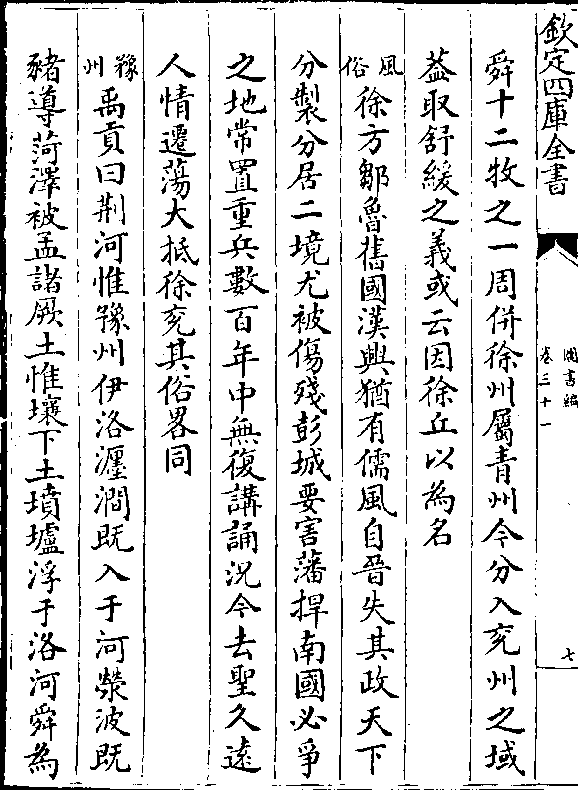 欽定四庫全書
圖書編
卷三十一
七
舜十二牧之一周併徐州屬青州今分入兖州之域
葢取舒緩之義或云因徐丘以為名
風俗 徐方鄒魯舊國漢興猶有儒風自晉失其政天下
分製分居二境尤被傷殘彭城要害藩捍南國必爭
之地常置重兵數百年中無復講誦況今去聖久遠
人情遷蕩大抵徐兖其俗畧同
豫州 禹貢曰荆河惟豫州伊洛瀍澗既入于河滎波既
豬導菏澤被孟諸厥土惟壤下土墳壚浮于洛河舜為